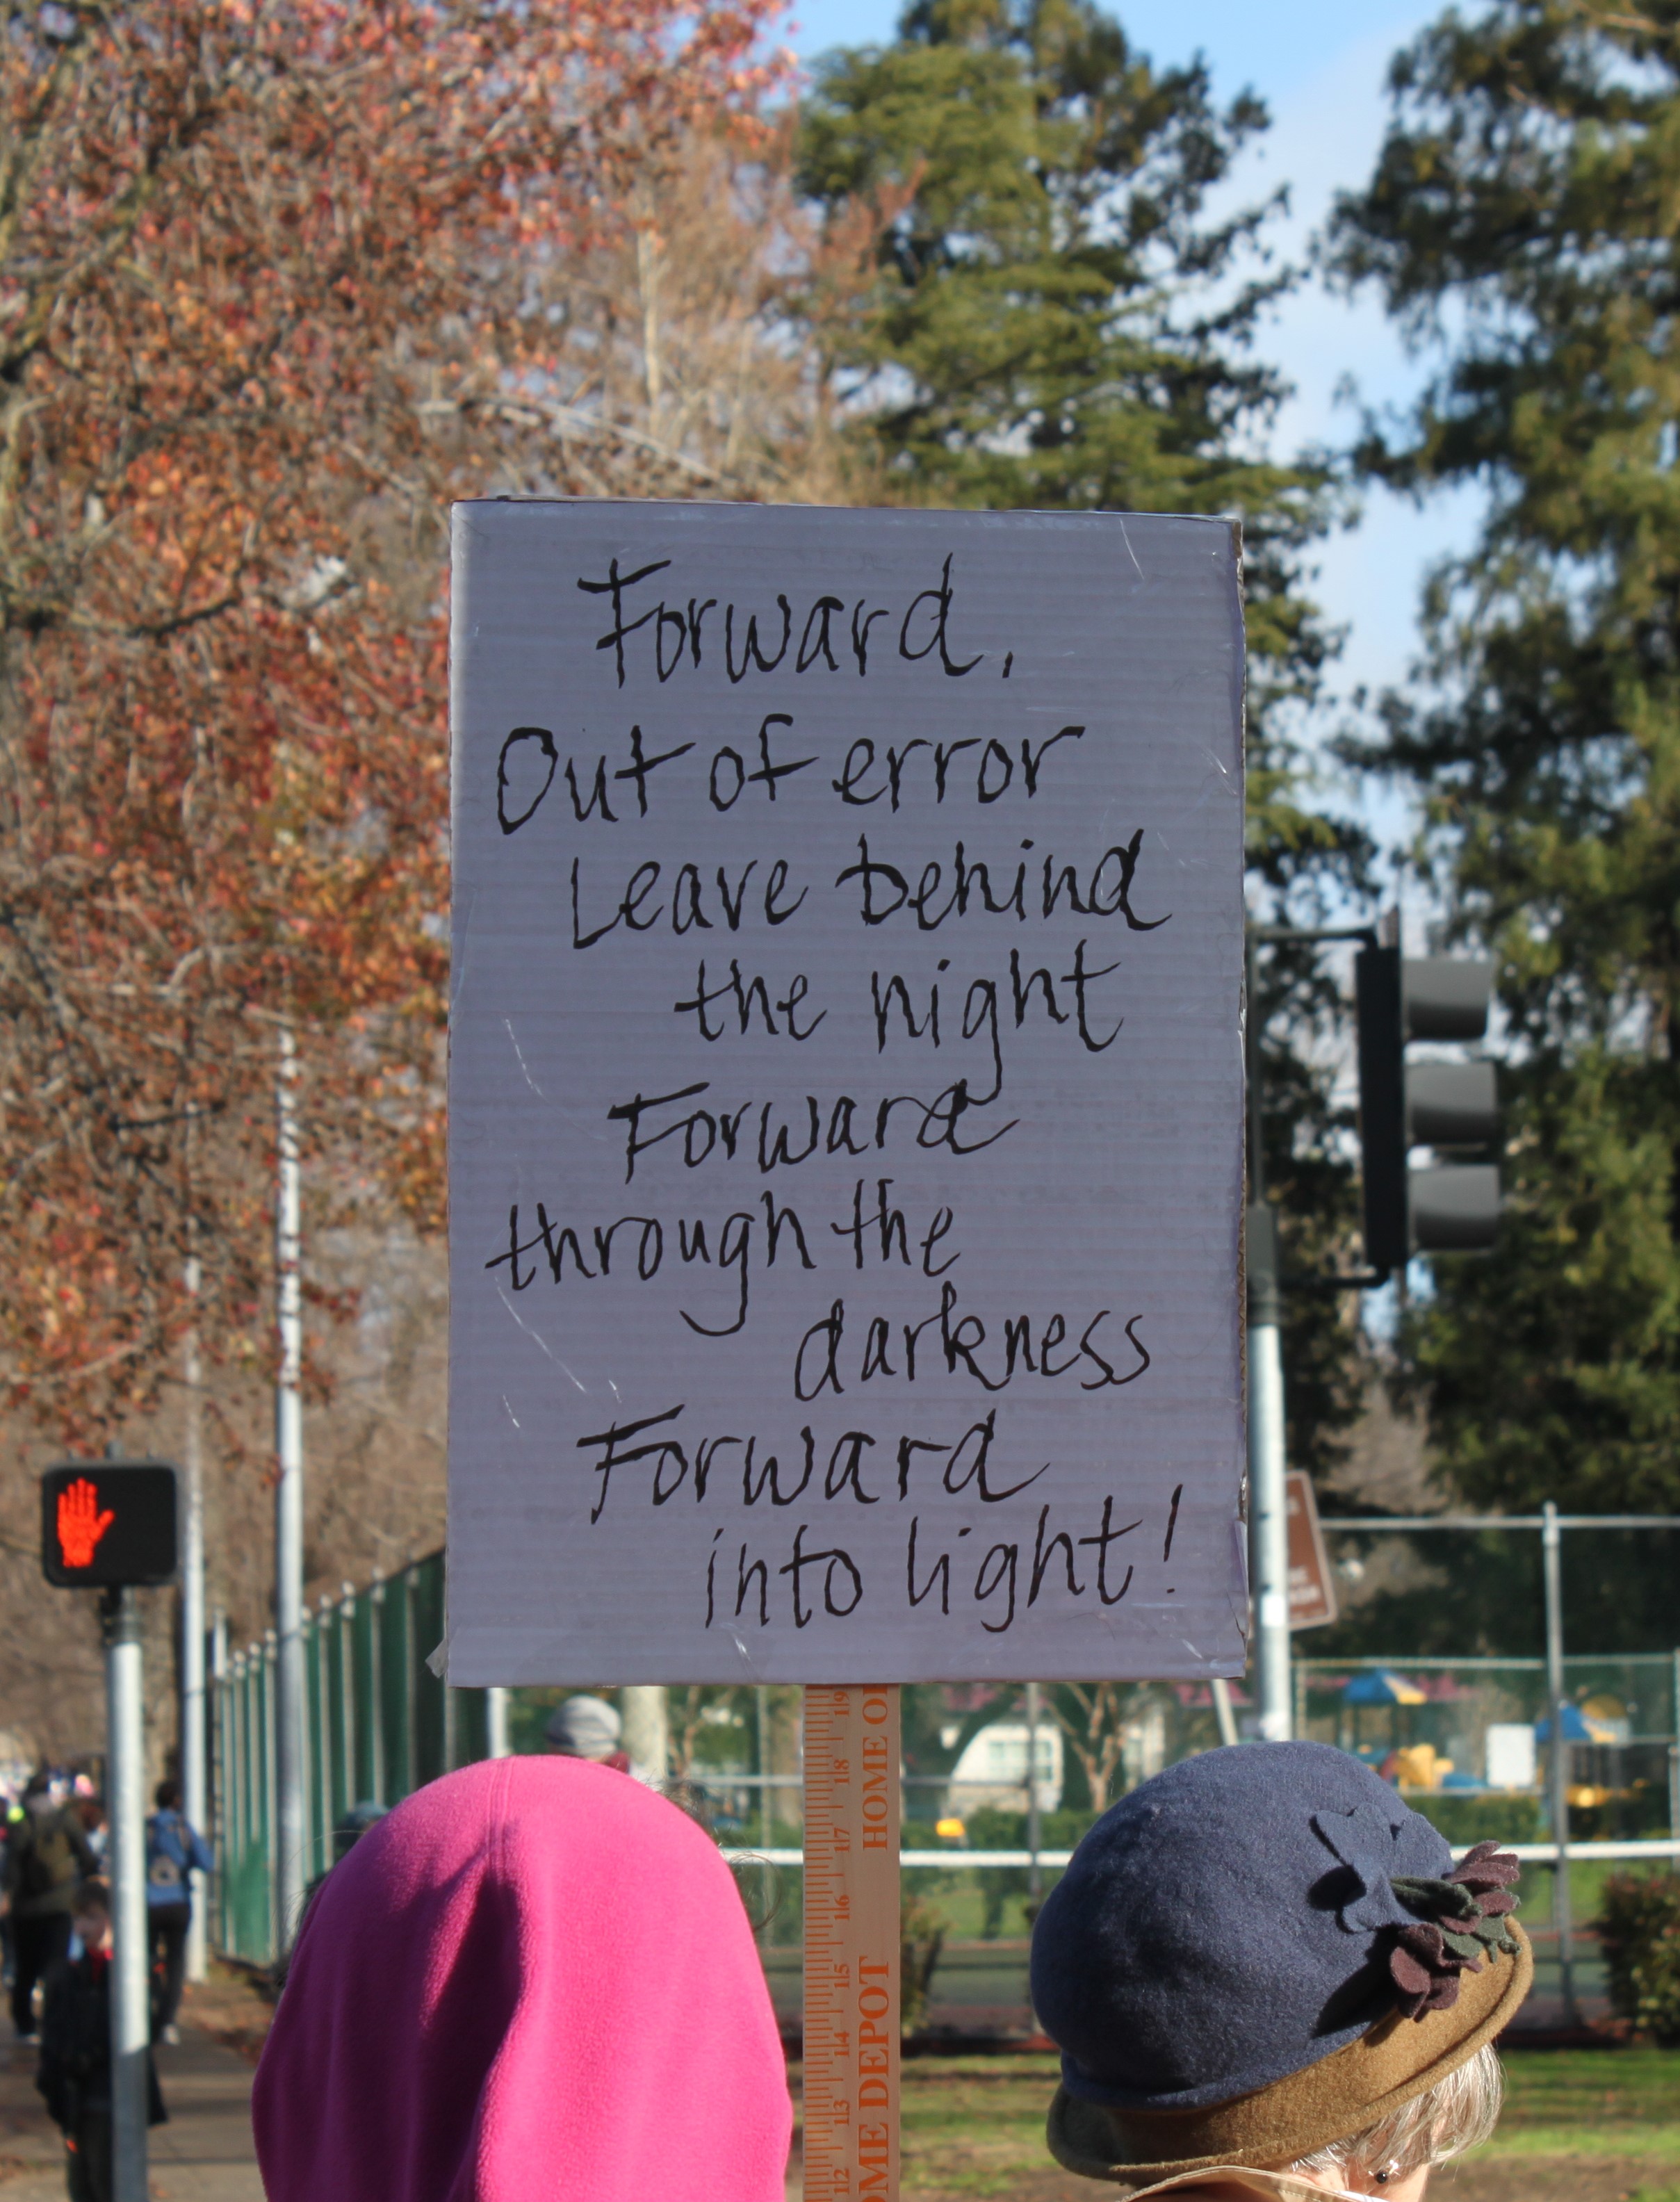 Forward,
Out of error
Leave behind
the night
Forward
through the
darkness
Forward
into light!
19
18
17
16
15
14
13
12
HOME
OME DEPOT